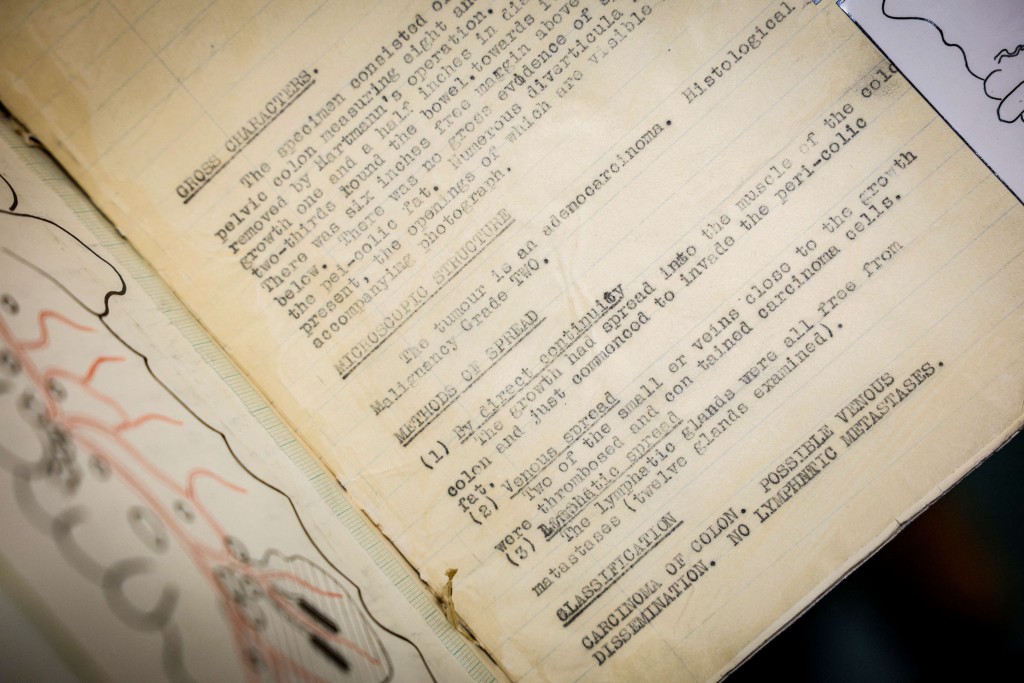 GROSS CHARACTERS.
The specimen consisted o
pelvic colon measuring eight an
removed by Hartmann's operation.
growth one and a half inches in dia
two-thirds round the bowel towards i
There was six inches free margin above
below. There was no gross evidence of s
the peri-colic fat. Numerous diverticula
present, the openings of which are visible
accompanying photograph.
MICROSCOPIC STRUCTURE
The tumour is an adenocarcinoma. Histological
Malignancy Grade TWO.
METHODS OF SPREAD
(1) By direct continuity
The growth had spread into the muscle of the colo
colon and just commenced to invade the peri-colic
fat.
(2) Venous spread
Two of the small er veins close to the growth
were thrombosed and con tained carcinoma cells.
(3) Lymphatic spread
The lymphatic glands were all free from
matastases (twelve glands examined).
CLASSIFICATION
CARCINOMA OF COLON. POSSIBLE VENOUS
DISSEMINATION. NO LYMPHETIC METASTASES.